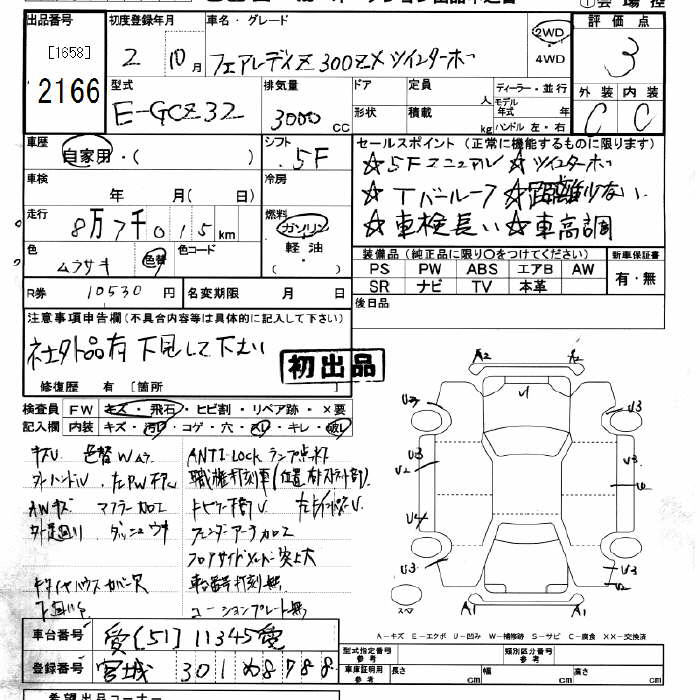 出品番号 初度登録年月 車名・グレード 評価点
[1658] 2 10月 フェアレディZ 300ZX ツインターボ 2WD 3
2166 4WD
型式 排気量 ドア 定員 ディーラー・並行 外装 内装
E-GCZ32 3000cc 形状 積載 人 モデル年式 年 C C
kg ハンドル 左・右
車歴 シフト セールスポイント (正常に機能するものに限ります)
自家用・( ) 5F ☆5Fマニュアル ☆ツインターボ
車検 冷房 ☆Tバールーフ ☆距離少ない
年 月( 日) ☆車検長い ☆車高調
走行 燃料
8万7千015km ガソリン
色 色コード 軽油 装備品(純正品に限り〇をつけてください) 新車保証書
ムラサキ 色替 ( ) PS PW ABS エアB AW 有・無
R券 10530円 名変期限 月 日 SR ナビ TV 本革
後日品
注意事項申告欄(不具合内容等は具体的に記入して下さい)
社外品有 下見して下さい
初出品
修復歴 有 [箇所 ]
検査員 FW キズ・飛石・ヒビ割・リペア跡・×要
記入欄 内装 キズ・汚れ・コゲ・穴・スレ・キレ・破レ
キズU 色替Wムラ ANTI-LOCKランプ点灯
職権打刻車(位置右ストラット部)
AWキズ マフラー加工
ダッシュウキ フェンダーアーチ加工
フロアサイドメンバー突上大
タイヤハウスカバー欠 車台番号打刻無
下廻りサビ コーションプレート無
A2 A2 U3 U3 U2 U3 U3 U2 A1 A1 スペ
A-キズ E-エクボ U-凹み W-補修跡 S-サビ C-腐食 ××-交換済
車台番号 愛[51]11345愛 型式指定番号 参考 類別区分番号 参考
登録番号 宮城 301 め8788 車庫証明用 参考 長さ cm 幅 cm 高さ cm
希望出品コーナー